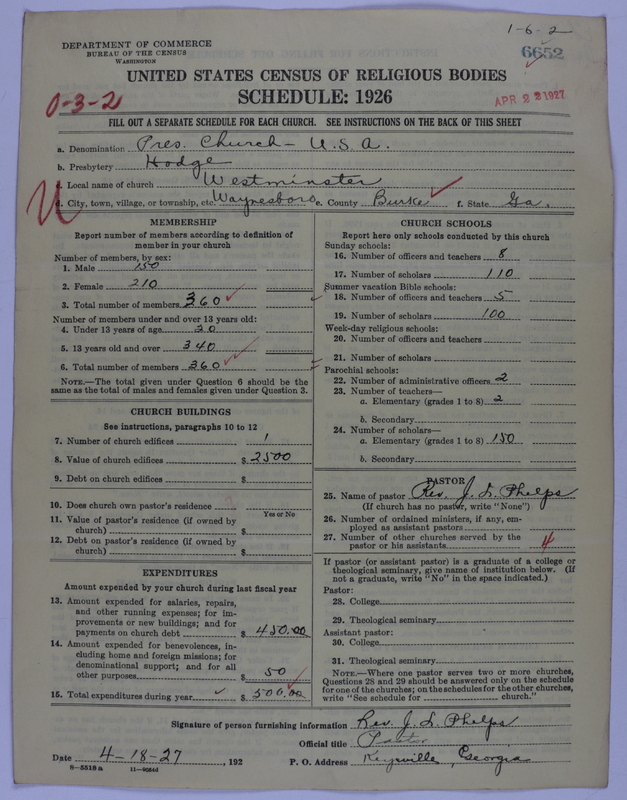 1-6-2
DEPARTMENT OF COMMERCE
BUREAU OF THE CENSUS
WASHINGTON
6652
UNITED STATES CENSUS OF RELIGIOUS BODIES
SCHEDULE: 1926
0-3-2
APR 22 1927
FILL OUT A SEPARATE SCHEDULE FOR EACH CHURCH. SEE INSTRUCTIONS ON THE BACK OF THIS SHEET
a. Denomination Pres. Church - U.S.A.
b. Presbytery Hodge
c. Local name of church Westminster
d. City, town, village, or township, etc. Waynesboro e. County Burke f. State Ga.
MEMBERSHIP
Report number of members according to definition of
member in your church
Number of members, by sex:
1. Male 150
2. Female 210
3. Total number of members 360
Number of members under and over 13 years old:
4. Under 13 years of age 20
5. 13 years old and over 340
6. Total number of members 360
NOTE.—The total given under Question 6 should be the
same as the total of males and females given under Question 3.
CHURCH BUILDINGS
See instructions, paragraphs 10 to 12
7. Number of church edifices 1
8. Value of church edifices $ 2500
9. Debt on church edifices $
10. Does church own pastor's residence ?
Yes or No
11. Value of pastor's residence (if owned by
church) $
12. Debt on pastor's residence (if owned by
church) $
EXPENDITURES
Amount expended by your church during last fiscal year
13. Amount expended for salaries, repairs,
and other running expenses; for im-
provements or new buildings; and for
payments on church debt $ 450.00
14. Amount expended for benevolences, in-
cluding home and foreign missions; for
denominational support; and for all
other purposes $ 50
15. Total expenditures during year $ 500.00
CHURCH SCHOOLS
Report here only schools conducted by this church
Sunday schools:
16. Number of officers and teachers 8
17. Number of scholars 110
Summer vacation Bible schools:
18. Number of officers and teachers 5
19. Number of scholars 100
Week-day religious schools:
20. Number of officers and teachers
21. Number of scholars
Parochial schools:
22. Number of administrative officers 2
23. Number of teachers—
a. Elementary (grades 1 to 8) 2
b. Secondary
24. Number of scholars—
a. Elementary (grades 1 to 8) 150
b. Secondary
PASTOR
25. Name of pastor Rev. J. L. Phelps
(If church has no pastor, write "None")
26. Number of ordained ministers, if any, em-
ployed as assistant pastors
27. Number of other churches served by the
pastor or his assistants 4
If pastor (or assistant pastor) is a graduate of a college or
theological seminary, give name of institution below. (If
not a graduate, write "No" in the space indicated.)
Pastor:
28. College
29. Theological seminary
Assistant pastor:
30. College
31. Theological seminary
NOTE.—Where one pastor serves two or more churches,
Questions 28 and 29 should be answered only on the schedule
for one of the churches; on the schedules for the other churches,
write "See schedule for church."
Signature of person furnishing information Rev. J. L. Phelps
Official title Pastor
Date 4-18-27, 192 P. O. Address Keysville, Georgia
8-5518a